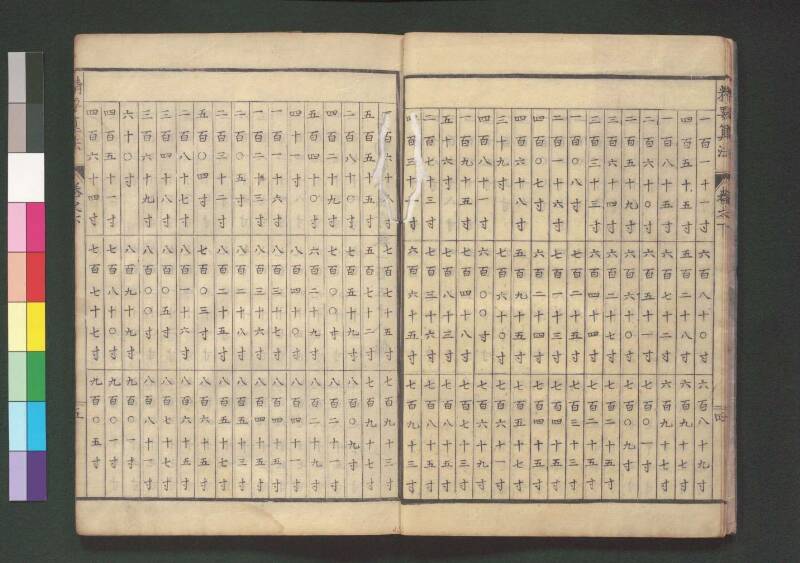 精要算法 卷之下
一百一十一寸 六百八十〇寸 六百八十九寸
四百五十五寸 五百二十八寸 六百九十七寸
一百八十五寸 六百七十二寸 六百九十七寸
二百六十〇寸 六百五十一寸 七百〇一寸
二百五十九寸 六百六十〇寸 七百〇九寸
三百六十四寸 六百二十七寸 七百二十五寸
三百三十三寸 六百四十四寸 七百二十五寸
一百〇八寸 七百二十五寸 七百三十三寸
二百一十六寸 七百一十三寸 七百四十五寸
四百〇七寸 六百二十四寸 七百四十五寸
四百六十八寸 五百九十五寸 七百五十七寸
三十九寸 七百六十〇寸 七百六十一寸
四百八十一寸 六百〇〇寸 七百六十九寸
一百九十五寸 七百四十八寸 七百七十三寸
五十六寸 七百八十三寸 七百八十五寸
二百七十三寸 七百三十六寸 七百八十五寸
四百三十二寸 六百六十五寸 七百九十三寸
一百六十八寸 七百七十五寸 七百九十三寸
五百五十五寸 五百七十二寸 七百九十七寸
二百八十〇寸 七百五十九寸 八百〇九寸
四百二十九寸 七百〇〇寸 八百二十一寸
五百四十〇寸 六百二十九寸 八百二十九寸
四十一寸 八百四十〇寸 八百四十一寸
一百一十六寸 八百三十七寸 八百四十五寸
一百二十三寸 八百三十六寸 八百四十五寸
二百〇五寸 八百二十八寸 八百五十三寸
二百三十二寸 八百二十五寸 八百五十七寸
五百〇四寸 七百〇三寸 八百六十五寸
二百八十七寸 八百一十六寸 八百六十五寸
三百四十八寸 八百〇五寸 八百七十七寸
三百六十九寸 八百〇〇寸 八百八十一寸
六十〇寸 八百九十九寸 九百〇一寸
四百五十一寸 七百八十〇寸 九百〇一寸
四百六十四寸 七百七十七寸 九百〇五寸
五